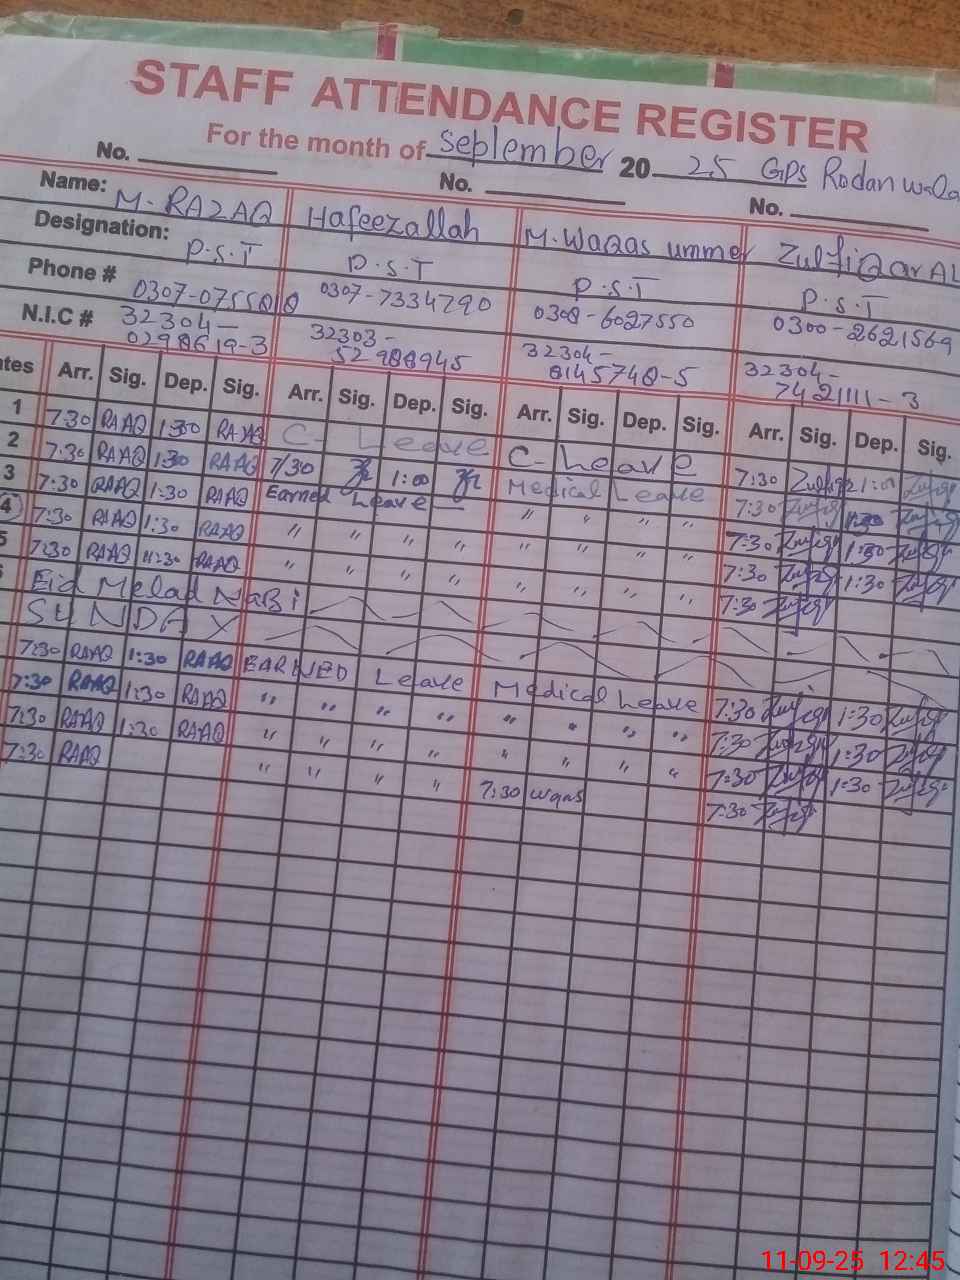 STAFF ATTENDANCE REGISTER
For the month of September 20 25 GPS Rodan wala
No. No. No.
Name: M. RAZAQ Hafeezallah M. WaQas ummer ZulfiQar AL
Designation: P.S.T P.S.T P.S.T P.S.T
Phone # 0307-7334790 0308-6027550 0300-2621569
N.I.C # 32304- 32303- 32304- 32304-
0298619-3 52988945 8145748-5 7421111-3
tes Arr. Sig. Dep. Sig. Arr. Sig. Dep. Sig. Arr. Sig. Dep. Sig. Arr. Sig. Dep. Sig.
1 7:30 RAAQ 1:30 RAAQ C- Leave C- Leave 7:30 Zulfiqr 1:00 Zulfiqr
2 7:30 RAAQ 1:30 RAAQ 7/30 1:00 Medical Leave 7:30 Zulfiqr 1:30 Zulfiqr
3 7:30 RAAQ 1:30 RAAQ Earned Leave — " " " " 7:30 Zulfiqr 1:30 Zulfiqr
4 7:30 RAAQ 1:30 RAAQ " " " " " " " " 7:30 Zulfiqr 1:30 Zulfiqr
5 7:30 RAAQ 11:30 RAAQ " " " " " " " " 7:30 Zulfiqr
Eid Melad NaBi
SUNDAY
7:30 RAAQ 1:30 RAAQ EARNED Leave Medical Leave 7:30 Zulfiqr 1:30 Zulfiqr
7:30 RAAQ 1:30 RAAQ " " " " " " " " 7:30 Zulfiqr 1:30 Zulfiqr
7:30 RAAQ 1:30 RAAQ " " " " " " " " 7:30 Zulfiqr 1:30 Zulfiqr
7:30 RAAQ " " " " 7:30 Wqas 7:30 Zulfiqr
11-09-25 12:45